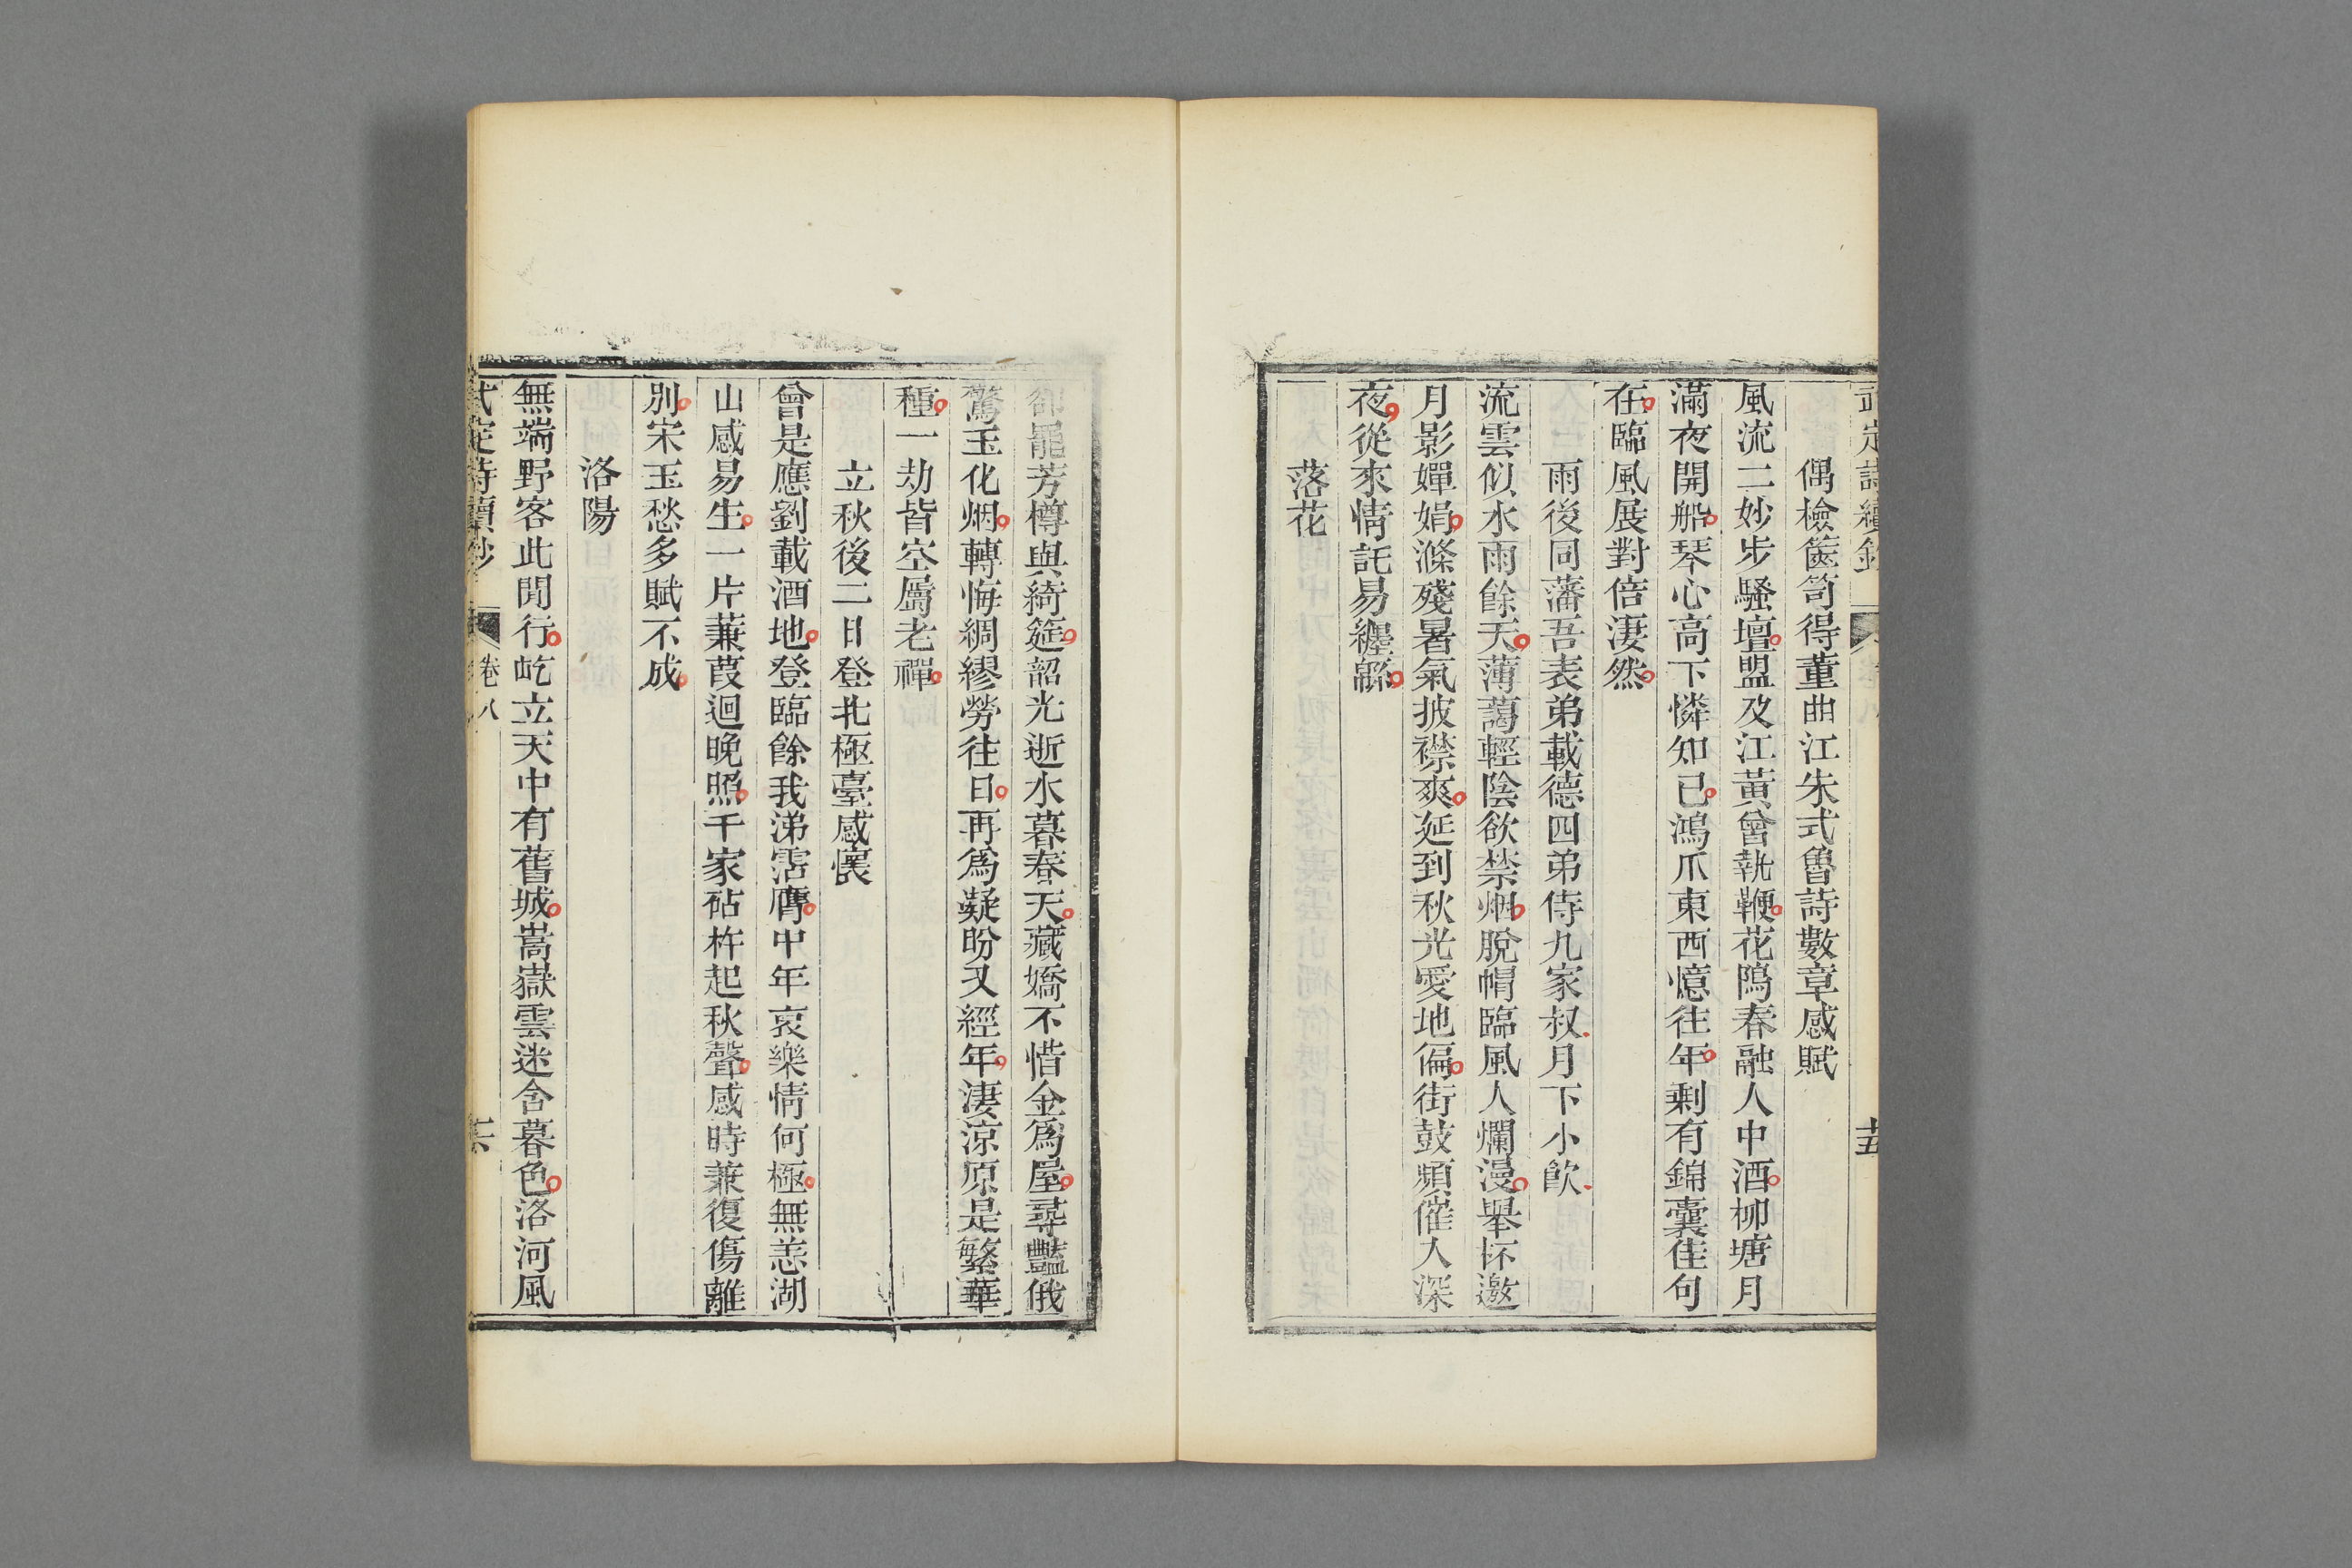 武定詩續鈔
卷八
偶檢篋笥得董曲江朱式魯詩數章感賦
風流二妙步騷壇盟及江黃曾執鞭花隖春融人中酒柳塘月
滿夜開船琴心高下憐知已鴻爪東西憶往年剩有錦囊佳句
在臨風展對倍淒然
雨後同藩吾表弟載德四弟侍九家叔月下小飲
流雲似水雨餘天薄藹輕陰欲禁烟脫帽臨風人爛漫舉杯邀
月影嬋娟滌殘暑氣披襟爽延到秋光愛地偏街鼓頻催人深
夜從來情託易纏緜
落花
卻罷芳樽與綺筵韶光逝水暮春天藏嬌不惜金爲屋尋豔俄
驚玉化烟轉悔綢繆勞往日再爲凝盼又經年淒涼原是繁華
種一劫皆空屬老禪
立秋後二日登北極臺感懷
曾是應劉載酒地登臨餘我涕霑膺中年哀樂情何極無恙湖
山感易生一片蒹葭迴晚照千家砧杵起秋聲感時兼復傷離
別宋玉愁多賦不成
洛陽
無端野客此閒行屹立天中有舊城嵩嶽雲迷含暮色洛河風
武定詩續鈔
卷八